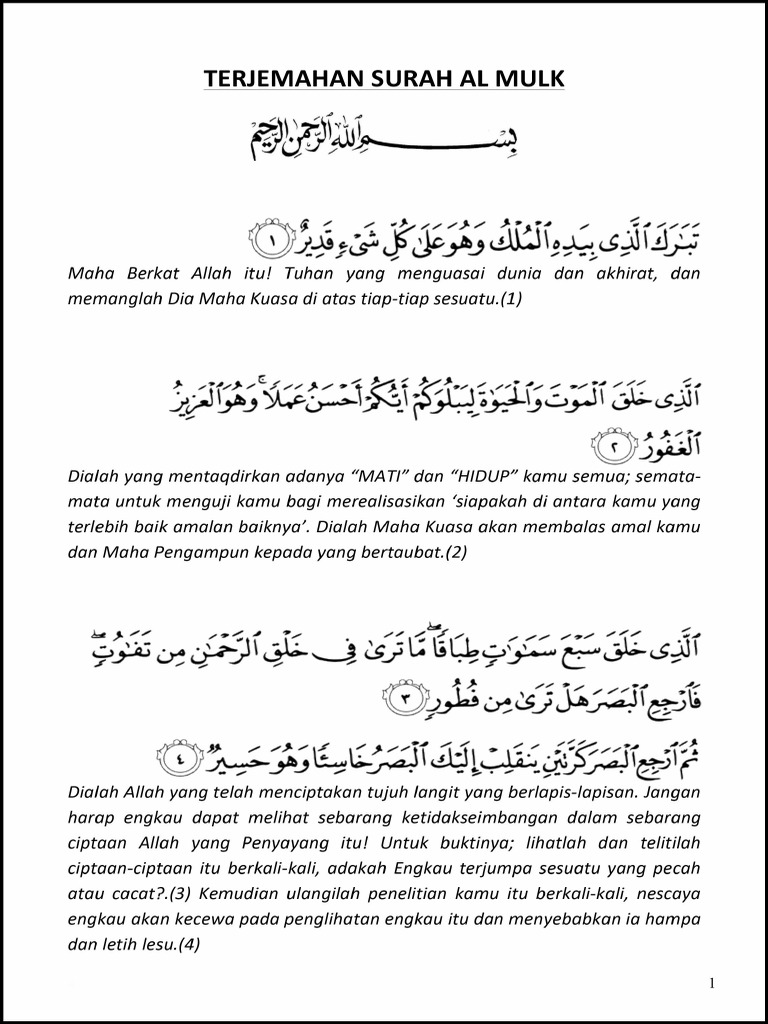 TERJEMAHAN SURAH AL MULK
بِسْمِ ٱللَّهِ ٱلرَّحْمَٰنِ ٱلرَّحِيمِ
تَبَٰرَكَ ٱلَّذِى بِيَدِهِ ٱلْمُلْكُ وَهُوَ عَلَىٰ كُلِّ شَىْءٍ قَدِيرٌ ١
Maha Berkat Allah itu! Tuhan yang menguasai dunia dan akhirat, dan
memanglah Dia Maha Kuasa di atas tiap-tiap sesuatu.(1)
ٱلَّذِى خَلَقَ ٱلْمَوْتَ وَٱلْحَيَوٰةَ لِيَبْلُوَكُمْ أَيُّكُمْ أَحْسَنُ عَمَلًا ۚ وَهُوَ ٱلْعَزِيزُ
ٱلْغَفُورُ ٢
Dialah yang mentaqdirkan adanya “MATI” dan “HIDUP” kamu semua; semata-
mata untuk menguji kamu bagi merealisasikan ‘siapakah di antara kamu yang
terlebih baik amalan baiknya’. Dialah Maha Kuasa akan membalas amal kamu
dan Maha Pengampun kepada yang bertaubat.(2)
ٱلَّذِى خَلَقَ سَبْعَ سَمَٰوَٰتٍ طِبَاقًا ۖ مَّا تَرَىٰ فِى خَلْقِ ٱلرَّحْمَٰنِ مِن تَفَٰوُتٍ ۖ
فَٱرْجِعِ ٱلْبَصَرَ هَلْ تَرَىٰ مِن فُطُورٍ ٣
ثُمَّ ٱرْجِعِ ٱلْبَصَرَ كَرَّتَيْنِ يَنقَلِبْ إِلَيْكَ ٱلْبَصَرُ خَاسِئًا وَهُوَ حَسِيرٌ ٤
Dialah Allah yang telah menciptakan tujuh langit yang berlapis-lapisan. Jangan
harap engkau dapat melihat sebarang ketidakseimbangan dalam sebarang
ciptaan Allah yang Penyayang itu! Untuk buktinya; lihatlah dan telitilah
ciptaan-ciptaan itu berkali-kali, adakah Engkau terjumpa sesuatu yang pecah
atau cacat?.(3) Kemudian ulangilah penelitian kamu itu berkali-kali, nescaya
engkau akan kecewa pada penglihatan engkau itu dan menyebabkan ia hampa
dan letih lesu.(4)
1